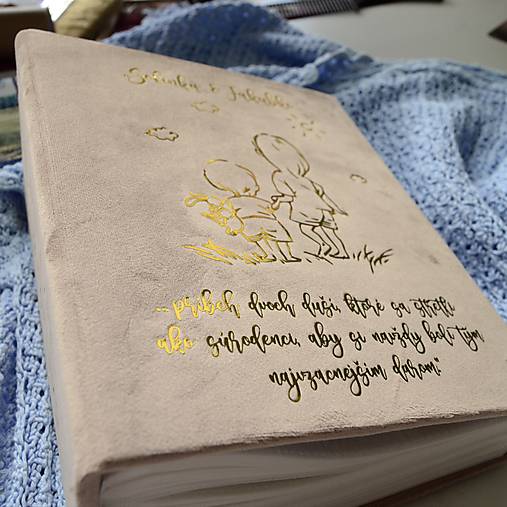 Sofinka & Jakubko
...príbeh dvoch duší, ktoré sa stretli
ako súrodenci, aby si navždy boli tým
najvzácnejším darom."